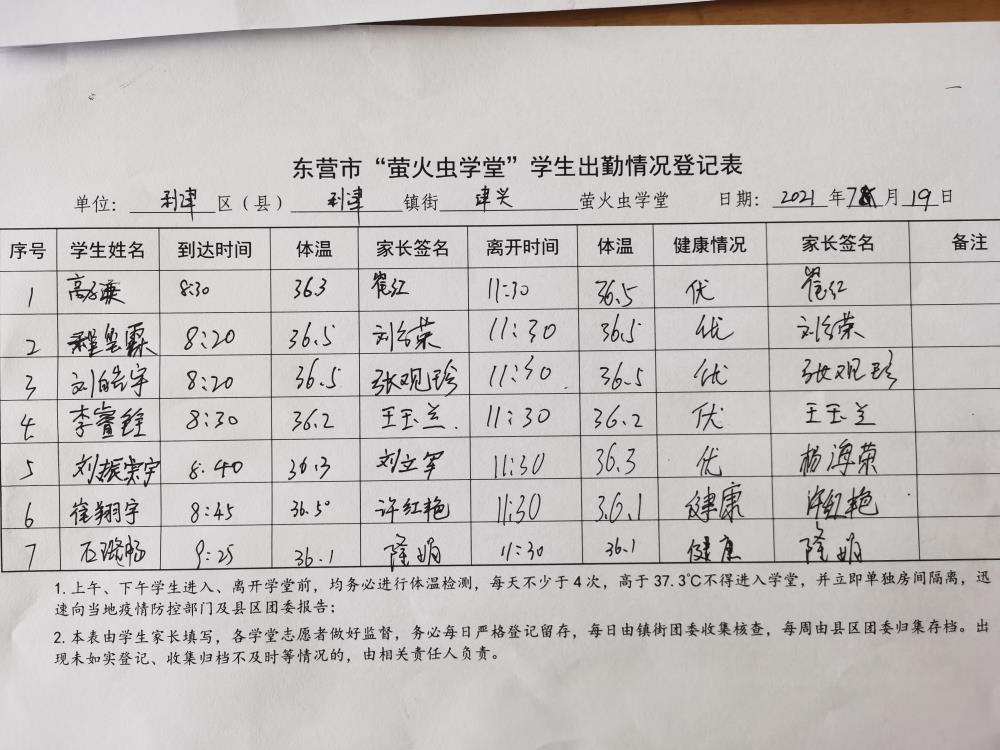 东营市“萤火虫学堂”学生出勤情况登记表
单位： 利津 区（县） 利津 镇街 津兴 萤火虫学堂 日期： 2021 年 7 月 19 日
序号 学生姓名 到达时间 体温 家长签名 离开时间 体温 健康情况 家长签名 备注
1 8:30 36.3 崔红 11:30 36.5 优 崔红
2 8:20 36.5 11:30 36.5 优
3 刘皓宇 8:20 36.5 张观珍 11:30. 36.5 优 张观珍
4 李睿锃 8:30 36.2 王玉兰. 11:30 36.2 优 王玉兰
5 刘振宗宇 8:40 36.3 刘立军 11:30 36.3 优 杨海荣
6 崔翔宇 8:45 36.5° 许红艳 11:30 3.6.1 健康 许红艳
7 9:25 36.1 隆娟 11:30 36.1 健康 隆娟
1. 上午、下午学生进入、离开学堂前，均务必进行体温检测，每天不少于 4 次，高于 37.3℃不得进入学堂，并立即单独房间隔离，迅
速向当地疫情防控部门及县区团委报告；
2. 本表由学生家长填写，各学堂志愿者做好监督，务必每日严格登记留存，每日由镇街团委收集核查，每周由县区团委归集存档。出
现未如实登记、收集归档不及时等情况的，由相关责任人负责。